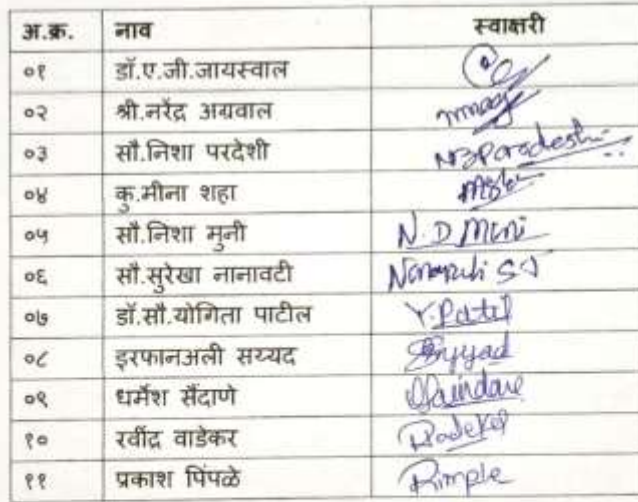 अ.क्र. नाव स्वाक्षरी
०१ डॉ.ए.जी.जायस्वाल
०२ श्री.नरेंद्र अग्रवाल
०३ सौ.निशा परदेशी NBPardeshi
०४ कु.मीना शहा
०५ सौ.निशा मुनी N.D Muni
०६ सौ.सुरेखा नानावटी
०७ डॉ.सौ.योगिता पाटील Y.Patil
०८ इरफानअली सय्यद Sayyad
०९ धर्मेश सैंदाणे
१० रवींद्र वाडेकर
११ प्रकाश पिंपळे Pimple